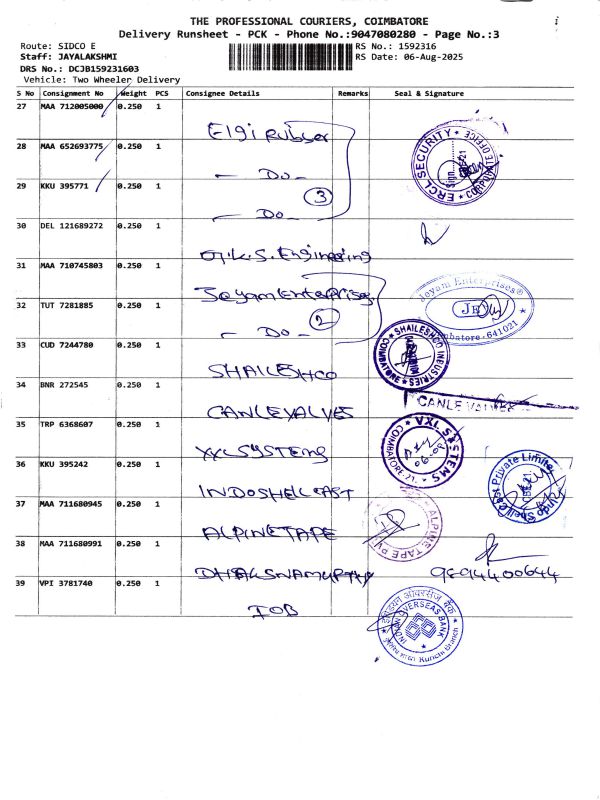 THE PROFESSIONAL COURIERS, COIMBATORE
Delivery Runsheet - PCK - Phone No.:9047080280 - Page No.:3
Route: SIDCO E
RS No.: 1592316
Staff: JAYALAKSHMI
RS Date: 06-Aug-2025
DRS No.: DCJB159231603
Vehicle: Two Wheeler Delivery
S No Consignment No Weight PCS Consignee Details Remarks Seal & Signature
27 MAA 712005000 0.250 1
Elgi Rubber
28 MAA 652693775 0.250 1
ERCL SECURITY
CORPORATE OFFICE
- Do -
29 KKU 395771 0.250 1
3
- Do -
30 DEL 121689272 0.250 1
G.K.S. Engineering
31 MAA 710745803 0.250 1
Jayam Enterprises
Jayam Enterprises®
32 TUT 7281885 0.250 1
JE
2
- Do -
Coimbatore-641021
33 CUD 7244780 0.250 1
SHAILESHCO INDUSTRIES
COIMBATORE
SHAILESHCO
34 BNR 272545 0.250 1
CANLE VALVES
CANLE VALVES
35 TRP 6368607 0.250 1
VXL SYSTEMS
COIMBATORE-21.
VXL SYSTEMS
36 KKU 395242 0.250 1
Indo Shell Cast Private Limited
CBE-21
INDOSHELL CAST
37 MAA 711680945 0.250 1
ALPINE TAPE
ALPINE TAPE
38 MAA 711680991 0.250 1
9894400644
39 VPI 3781740 0.250 1
IOB
इंडियन ओवरसीज बैंक
INDIAN OVERSEAS BANK
Kurichi Branch